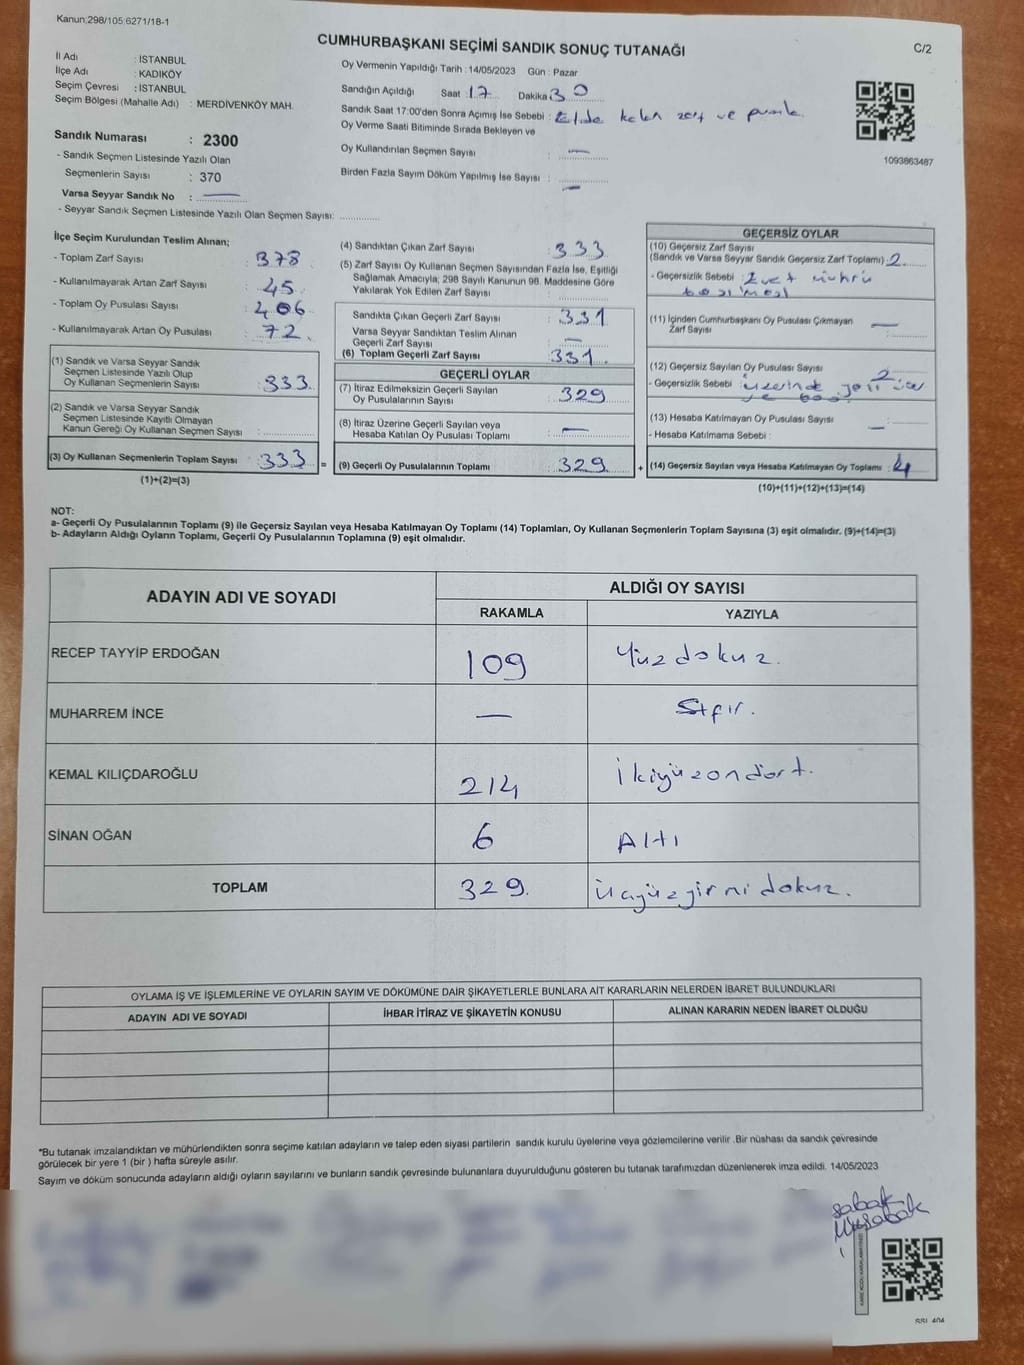 Kanun:298/105 6271/18-1
CUMHURBAŞKANI SEÇİMİ SANDIK SONUÇ TUTANAĞI
C/2
İl Adı : İSTANBUL
İlçe Adı : KADIKÖY
Seçim Çevresi : İSTANBUL
Seçim Bölgesi (Mahalle Adı) : MERDİVENKÖY MAH.
Sandık Numarası : 2300
- Sandık Seçmen Listesinde Yazılı Olan
Seçmenlerin Sayısı : 370
Varsa Seyyar Sandık No : —
- Seyyar Sandık Seçmen Listesinde Yazılı Olan Seçmen Sayısı: ............
Oy Vermenin Yapıldığı Tarih : 14/05/2023 Gün : Pazar
Sandığın Açıldığı Saat : 17 Dakika : 30
Sandık Saat 17:00'den Sonra Açımış İse Sebebi : Elde kalan zarf ve pusula
Oy Verme Saati Bitiminde Sırada Bekleyen ve
Oy Kullandırılan Seçmen Sayısı : —
Birden Fazla Sayım Döküm Yapılmış İse Sayısı : —
1093863487
İlçe Seçim Kurulundan Teslim Alınan;
- Toplam Zarf Sayısı : 378
- Kullanılmayarak Artan Zarf Sayısı : 45
- Toplam Oy Pusulası Sayısı : 406
- Kullanılmayarak Artan Oy Pusulası : 72
(1) Sandık ve Varsa Seyyar Sandık
Seçmen Listesinde Yazılı Olup
Oy Kullanan Seçmenlerin Sayısı : 333
(2) Sandık ve Varsa Seyyar Sandık
Seçmen Listesinde Kayıtlı Olmayan
Kanun Gereği Oy Kullanan Seçmen Sayısı : ............
(3) Oy Kullanan Seçmenlerin Toplam Sayısı : 333 =
(1)+(2)=(3)
(4) Sandıktan Çıkan Zarf Sayısı : 333
(5) Zarf Sayısı Oy Kullanan Seçmen Sayısından Fazla İse, Eşitliği
Sağlamak Amacıyla, 298 Sayılı Kanunun 98. Maddesine Göre
Yakılarak Yok Edilen Zarf Sayısı : ............
Sandıkta Çıkan Geçerli Zarf Sayısı : 331
Varsa Seyyar Sandıktan Teslim Alınan
Geçerli Zarf Sayısı : —
(6) Toplam Geçerli Zarf Sayısı : 331
GEÇERLİ OYLAR
(7) İtiraz Edilmeksizin Geçerli Sayılan
Oy Pusulalarının Sayısı : 329
(8) İtiraz Üzerine Geçerli Sayılan veya
Hesaba Katılan Oy Pusulası Toplamı : —
(9) Geçerli Oy Pusulalarının Toplamı : 329 +
GEÇERSİZ OYLAR
(10) Geçersiz Zarf Sayısı
(Sandık ve Varsa Seyyar Sandık Geçersiz Zarf Toplamı) : 2
- Geçersizlik Sebebi : Evet mührü
(11) İçinden Cumhurbaşkanı Oy Pusulası Çıkmayan
Zarf Sayısı : —
(12) Geçersiz Sayılan Oy Pusulası Sayısı : 2
- Geçersizlik Sebebi : üzerinde yazı
ve boş
(13) Hesaba Katılmayan Oy Pusulası Sayısı : —
- Hesaba Katılmama Sebebi :
(14) Geçersiz Sayılan veya Hesaba Katılmayan Oy Toplamı : 4
(10)+(11)+(12)+(13)=(14)
NOT:
a- Geçerli Oy Pusulalarının Toplamı (9) ile Geçersiz Sayılan veya Hesaba Katılmayan Oy Toplamı (14) Toplamları, Oy Kullanan Seçmenlerin Toplam Sayısına (3) eşit olmalıdır. (9)+(14)=(3)
b- Adayların Aldığı Oyların Toplamı, Geçerli Oy Pusulalarının Toplamına (9) eşit olmalıdır.
ADAYIN ADI VE SOYADI
ALDIĞI OY SAYISI
RAKAMLA YAZIYLA
RECEP TAYYİP ERDOĞAN 109 Yüzdokuz.
MUHARREM İNCE — Sıfır.
KEMAL KILIÇDAROĞLU 214 İkiyüzondört.
SİNAN OĞAN 6 Altı
TOPLAM 329. Üçyüzyirmidokuz.
OYLAMA İŞ VE İŞLEMLERİNE VE OYLARIN SAYIM VE DÖKÜMÜNE DAİR ŞİKAYETLERLE BUNLARA AİT KARARLARIN NELERDEN İBARET BULUNDUKLARI
ADAYIN ADI VE SOYADI İHBAR İTİRAZ VE ŞİKAYETİN KONUSU ALINAN KARARIN NEDEN İBARET OLDUĞU
*Bu tutanak imzalandıktan ve mühürlendikten sonra seçime katılan adayların ve talep eden siyasi partilerin sandık kurulu üyelerine veya gözlemcilerine verilir .Bir nüshası da sandık çevresinde
görülecek bir yere 1 (bir ) hafta süreyle asılır.
Sayım ve döküm sonucunda adayların aldığı oyların sayılarını ve bunların sandık çevresinde bulunanlara duyurulduğunu gösteren bu tutanak tarafımızdan düzenlenerek imza edildi. 14/05/2023